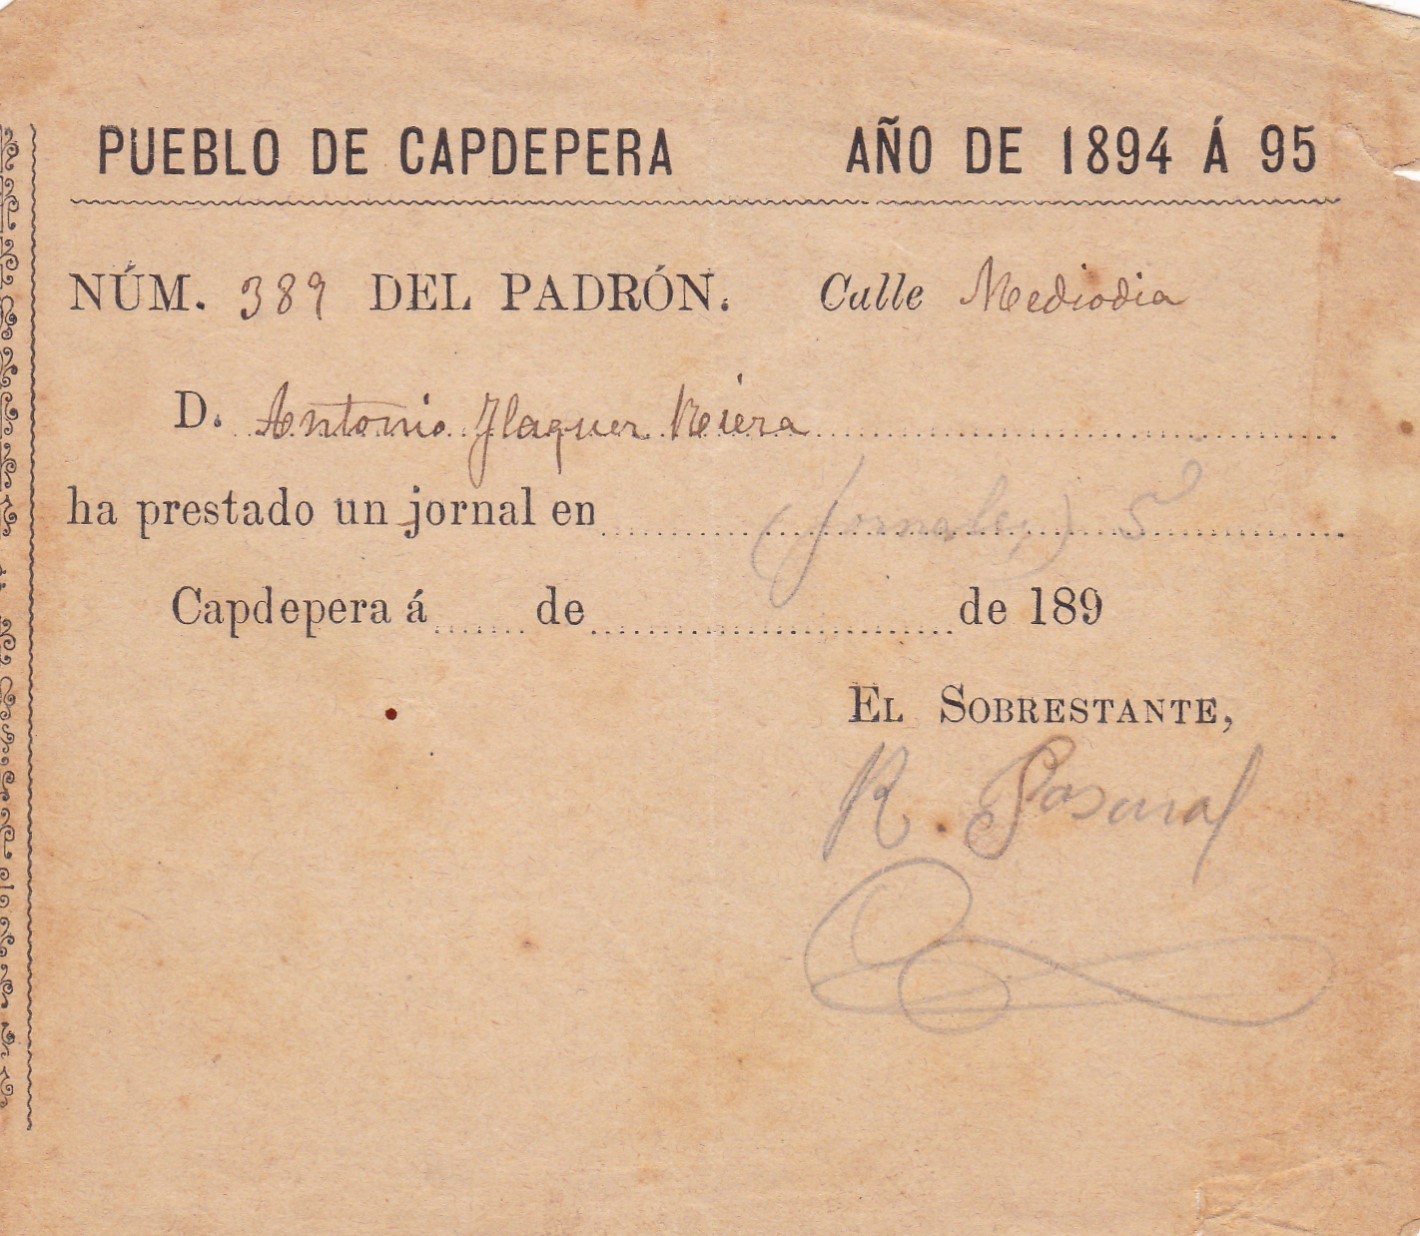 PUEBLO DE CAPDEPERA AÑO DE 1894 Á 95
NÚM. 389 DEL PADRÓN. Calle Mediodia
D. Antonio Flaquer Riera
ha prestado un jornal en (jornales) 5
Capdepera á de de 189
EL SOBRESTANTE,
R. Pascual